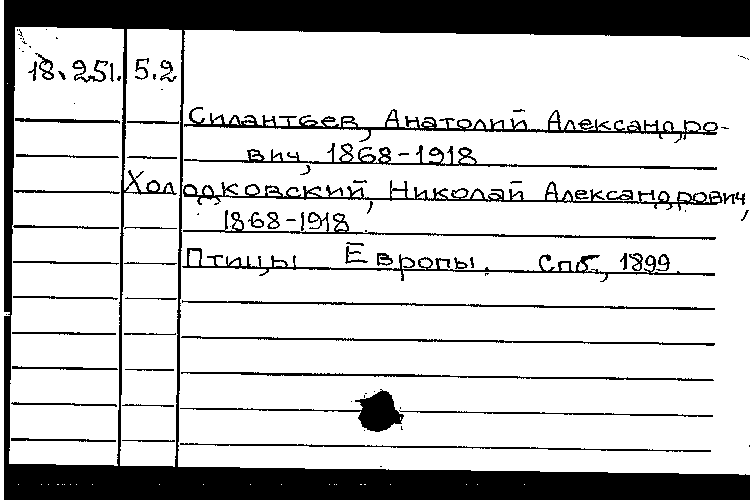 18.251. 5.2
Силантьев, Анатолий Александро-
вич, 1868-1918
Холодковский, Николай Александрович,
1868-1918
Птицы Европы. Спб., 1899.